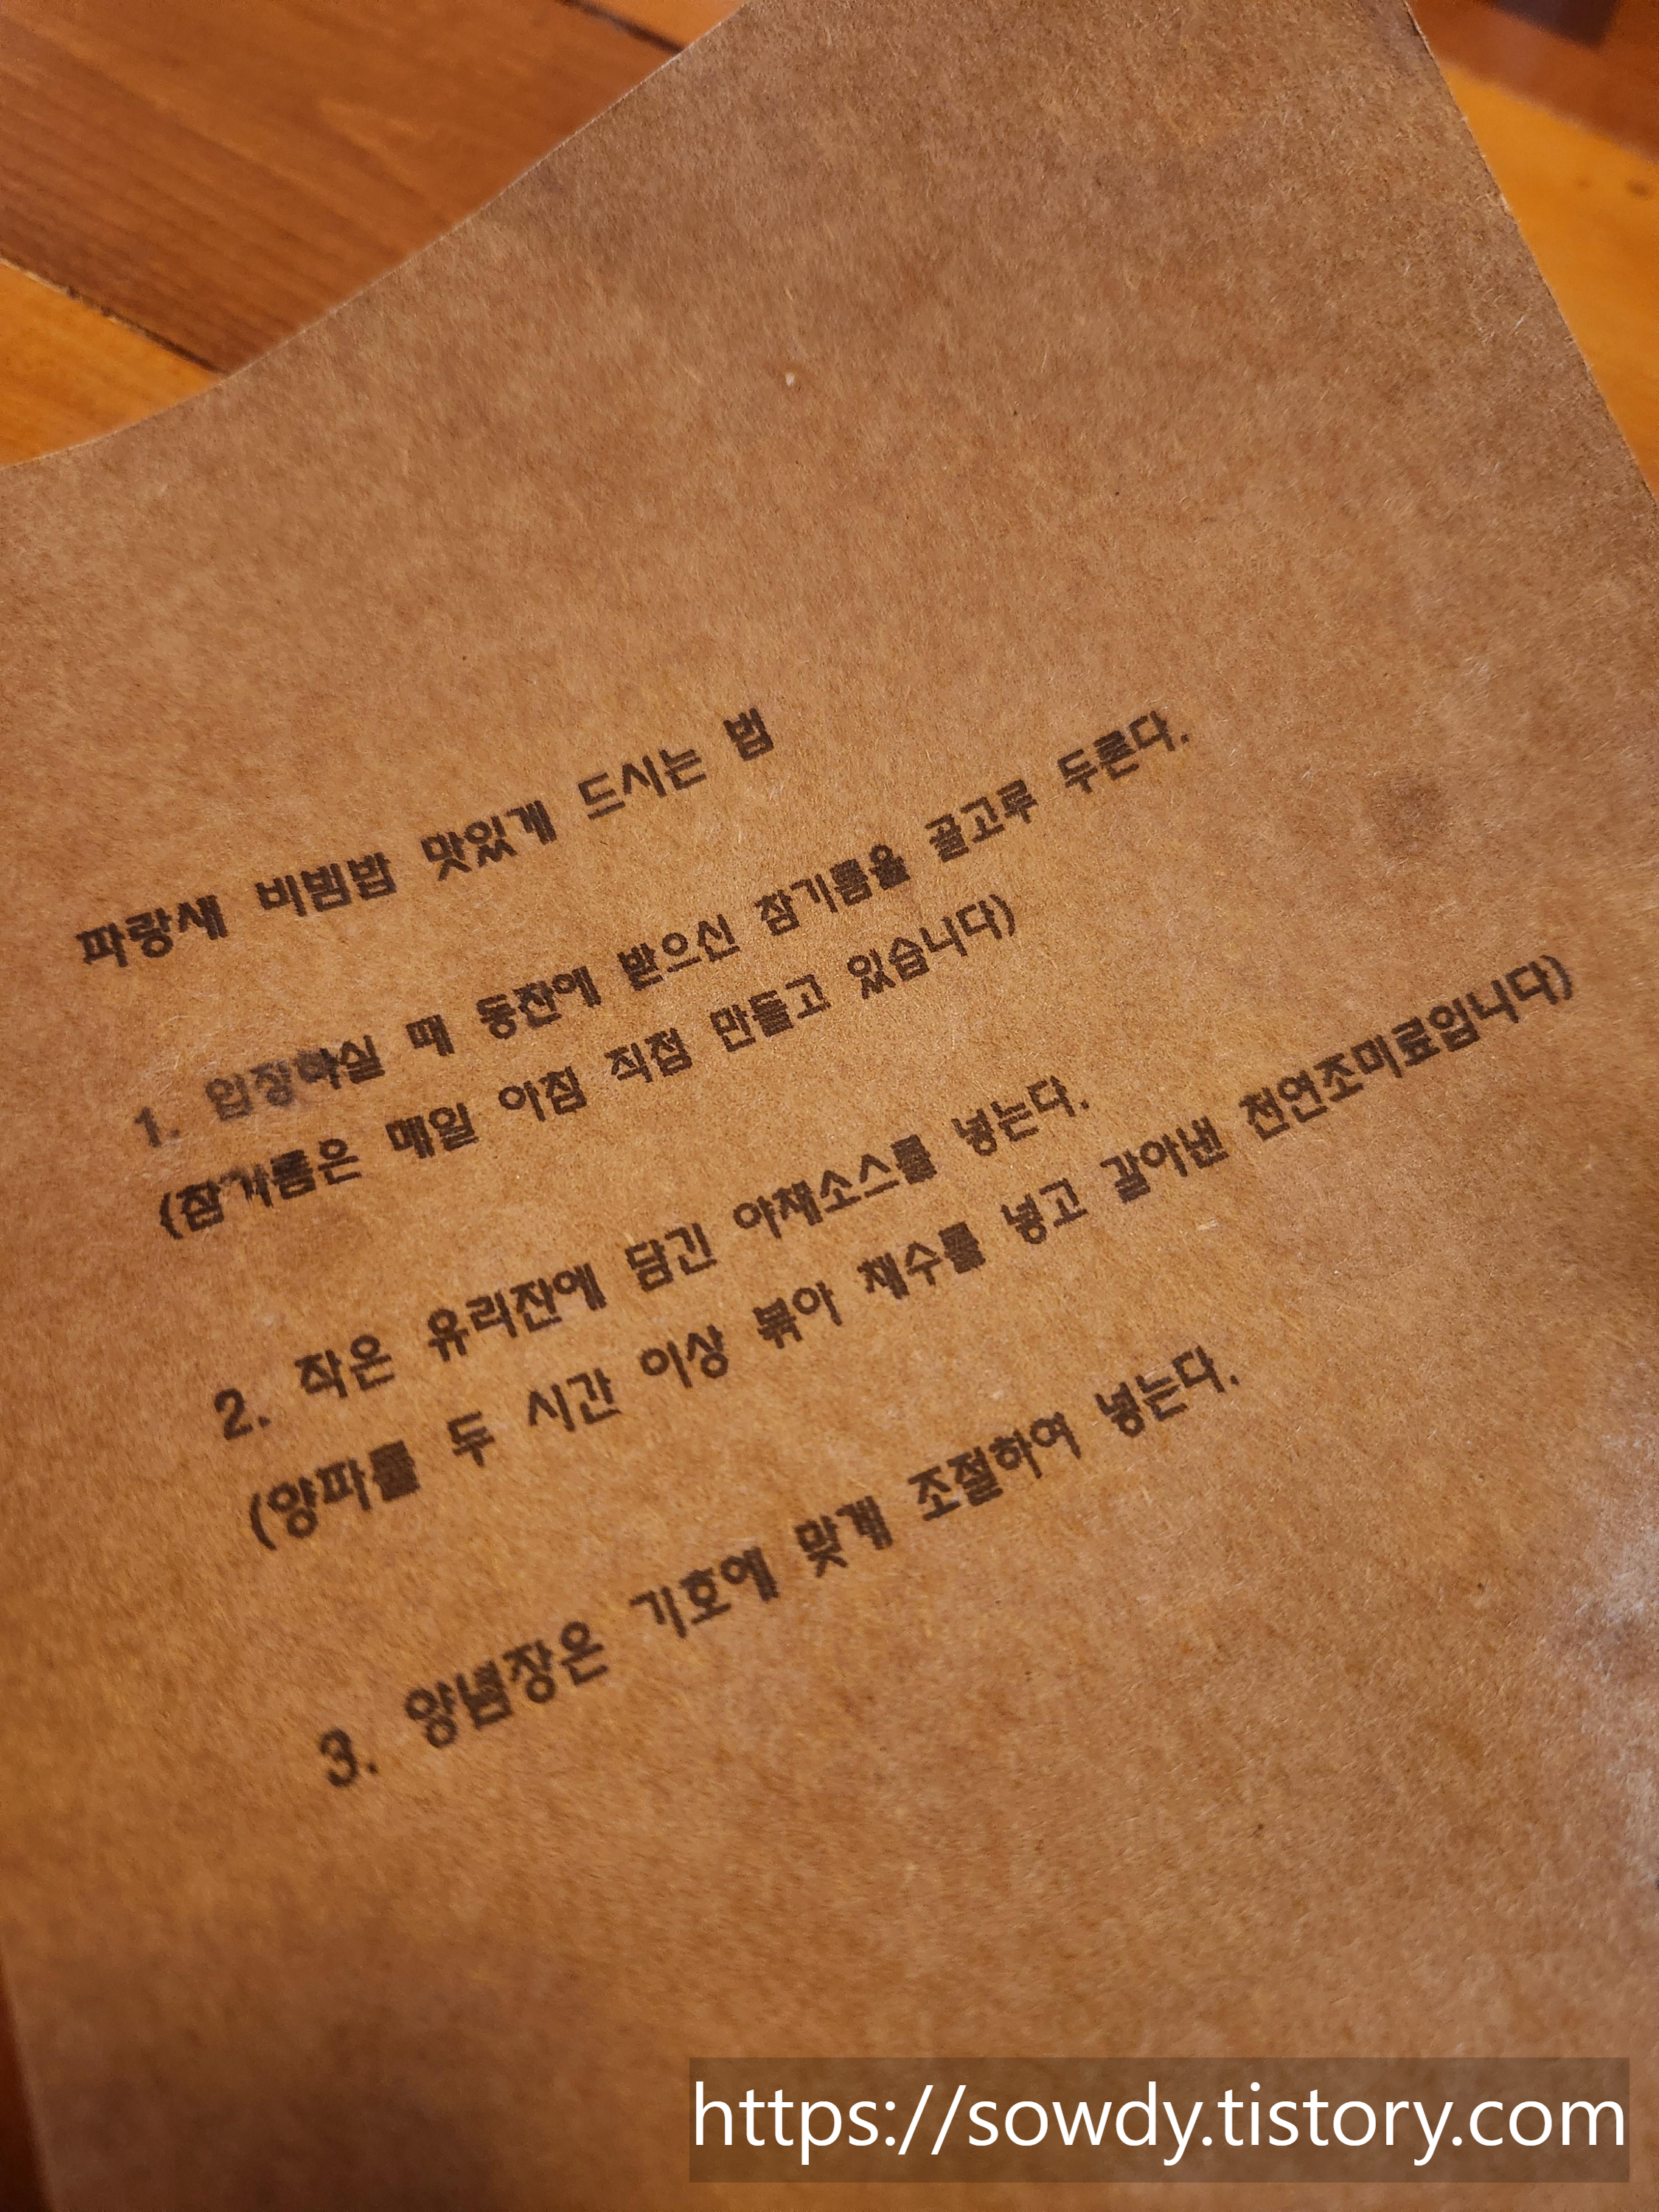 파랑새 비빔밥 맛있게 드시는 법
1. 입장하실 때 동잔에 받으신 참기름을 골고루 두른다.
(참기름은 매일 아침 직접 만들고 있습니다)
2. 작은 유리잔에 담긴 야채소스를 넣는다.
(양파를 두 시간 이상 볶아 채수를 넣고 갈아낸 천연조미료입니다)
3. 양념장은 기호에 맞게 조절하여 넣는다.
https://sowdy.tistory.com